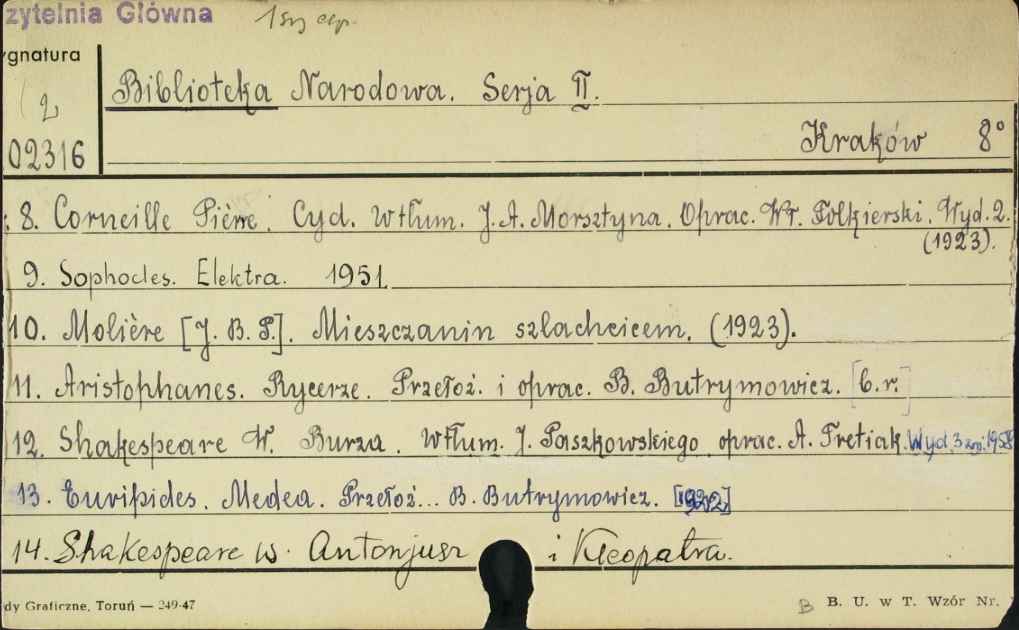 zytelnia Główna 1 szy egz.
ygnatura
Biblioteka Narodowa. Serja II.
02316
Kraków 8°
8. Corneille Pièrre. Cyd. Wtłum. J. A. Morsztyna. Oprac. Wł. Folkierski. Wyd. 2.
(1923).
9. Sophocles. Elektra. 1951.
10. Molière [J. B. P.]. Mieszczanin szlachcicem. (1923).
11. Aristophanes. Rycerze. Przełoż. i oprac. B. Butrymowicz. [b.r.]
12. Shakespeare W. Burza. Wtłum. J. Paszkowskiego oprac. A. Tretiak. Wyd. 3 zm. 1958
13. Euripides. Medea. Przełoż... B. Butrymowicz.
14. Shakespeare W. Antonjusz i Kleopatra.
dy Graficzne, Toruń — 249-47
B B. U. w T. Wzór Nr.